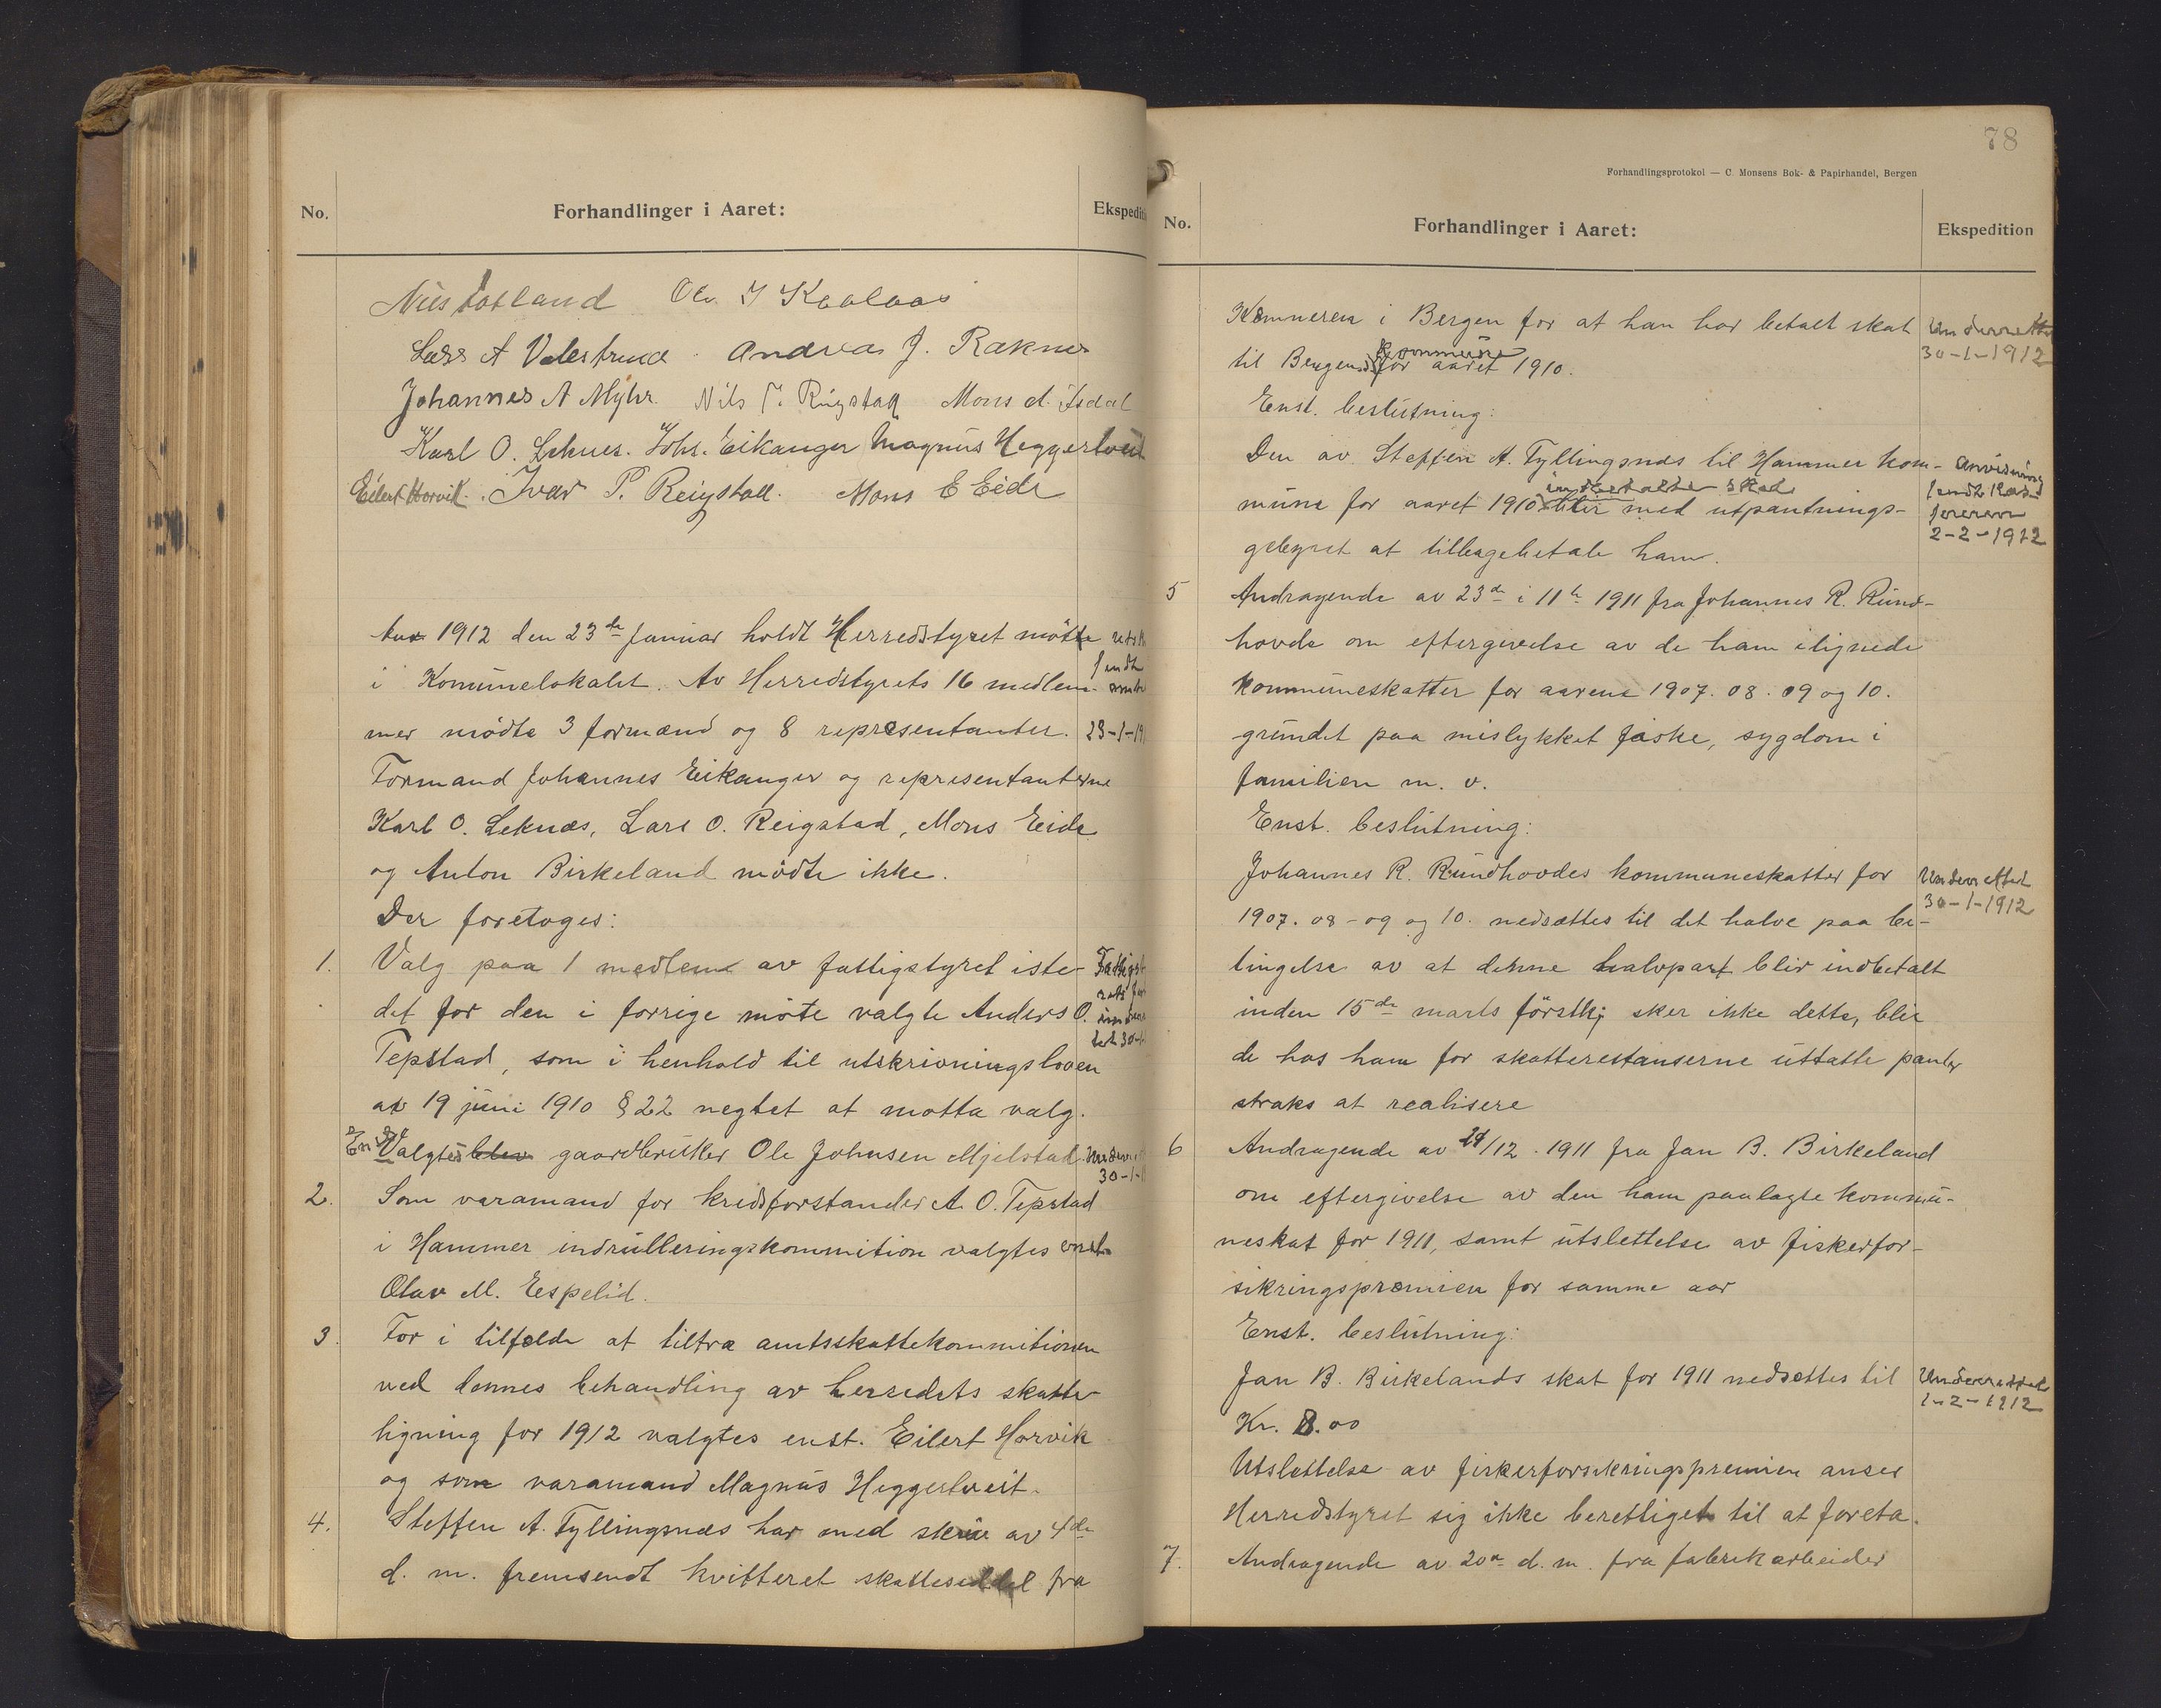 No.
Forhandlinger i Aaret:
Ekspedit
Nils Totland Ole J Kaalaas
Lars A Valestrand Andreas J. Raknes
Johannes A Myhr. Nils T. Rigstad Mons A. Isdal
Karl O. Leknes. Johs. Eikanger Magnus Heggertveit
Eilert Horvik. Ivar P. Reigstad. Mons E Eide
1912 den 23de Januar holdt Herredstyret møtte
i Komunelokalet. Av Herredstyrets 16 medlem- sendt
mer mødte 3 formænd og 8 representanter. 23-1-19
Formand Johannes Eikanger og representanterne
Karl O. Leknæs, Lars O. Reigstad, Mons Eide
og Anton Birkeland mødte ikke.
Der foretoges:
1. Valg paa 1 medlem av fattigstyret iste-
det for den i forrige møte valgte Anders O.
Tepstad, som i henhold til utskrivningsloven
av 19 juni 1910 § 22 negtet at motta valg.
Enst. Valgtes blev gaardbruker Ole Johnsen Mjelstad.
30-1-
2. Som varamand for kredsforstander A. O. Tepstad
i Hammer indrulleringskommition valgtes enst.
Olav M. Eespelid.
3. For i tilfælde at tiltræ amtsskattekommitionen
ved dennes behandling av herredets skatte-
ligning for 1912 valgtes enst. Eilert Horvik
og som varamand Magnus Heggertveit.
4. Steffen A. Tyllingsnæs har med skriv av 4de
d. m. fremsendt kvitteret skatteseddel fra
78
Forhandlingsprotokol — C. Monsens Bok- & Papirhandel, Bergen
No.
Forhandlinger i Aaret:
Ekspedition
Kemneren i Bergen for at han har betalt skat
Underrettet
30-1-1912
til Bergens kommune for aaret 1910.
Enst. beslutning:
Den av Steffen A. Tyllingsnæs til Hammer kom-
mune for aaret 1910 indbetalte skat blir med utpantnings-
gebyret at tilbagebetale ham.
Anvisning
sendt kas
sereren
2-2-1912
5 Andragende av 23de i 11te 1911 fra Johannes R. Rund-
hovde om eftergivelse av de ham ilignede
kommuneskatter for aarene 1907. 08. 09 og 10.
grundet paa mislykket fiske, sygdom i
familien m. v.
Enst. beslutning:
Johannes R. Rundhovdes kommuneskatter for
Underrettet
30-1-1912
1907. 08-09 og 10. nedsættes til det halve paa be-
tingelse av at denne halvpart blir indbetalt
inden 15de marts førstk; sker ikke dette, blir
de hos ham for skatterestanserne uttatte panter
straks at realisere
6 Andragende av 29/12. 1911 fra Jan B. Birkeland
om eftergivelse av den ham paalagte kommu-
neskat for 1911, samt utslettelse av fiskerfor-
sikringspræmien for samme aar
Enst. beslutning:
Jan B. Birkelands skat for 1911 nedsættes til
Underrettet
1-2-1912
Kr. 8.00
Utslettelse av fiskerforsikringspremien anser
Herredstyret sig ikke berettiget til at foreta.
7. Andragende av 20de d. m. fra fabrikarbeider